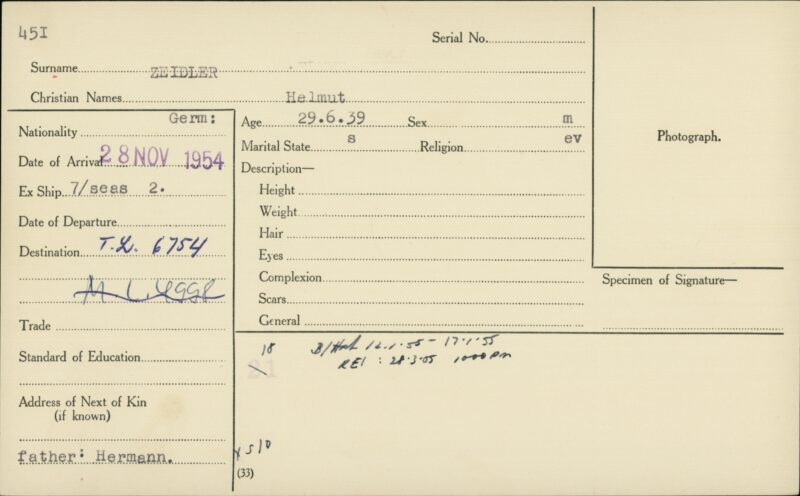 45I
Serial No.
Surname ZEIDLER
Christian Names Helmut
Nationality Germ:
Date of Arrival 28 NOV 1954
Ex Ship 7/seas 2.
Date of Departure
Destination T.L. 6754
Trade
Standard of Education
Address of Next of Kin
(if known)
father: Hermann.
Age 29.6.39 Sex m
Marital State s Religion ev
Description—
Height
Weight
Hair
Eyes
Complexion
Scars
General
Photograph.
Specimen of Signature—
18
21
17.1.55
REI : 28.3.55 1000 pm
(33)